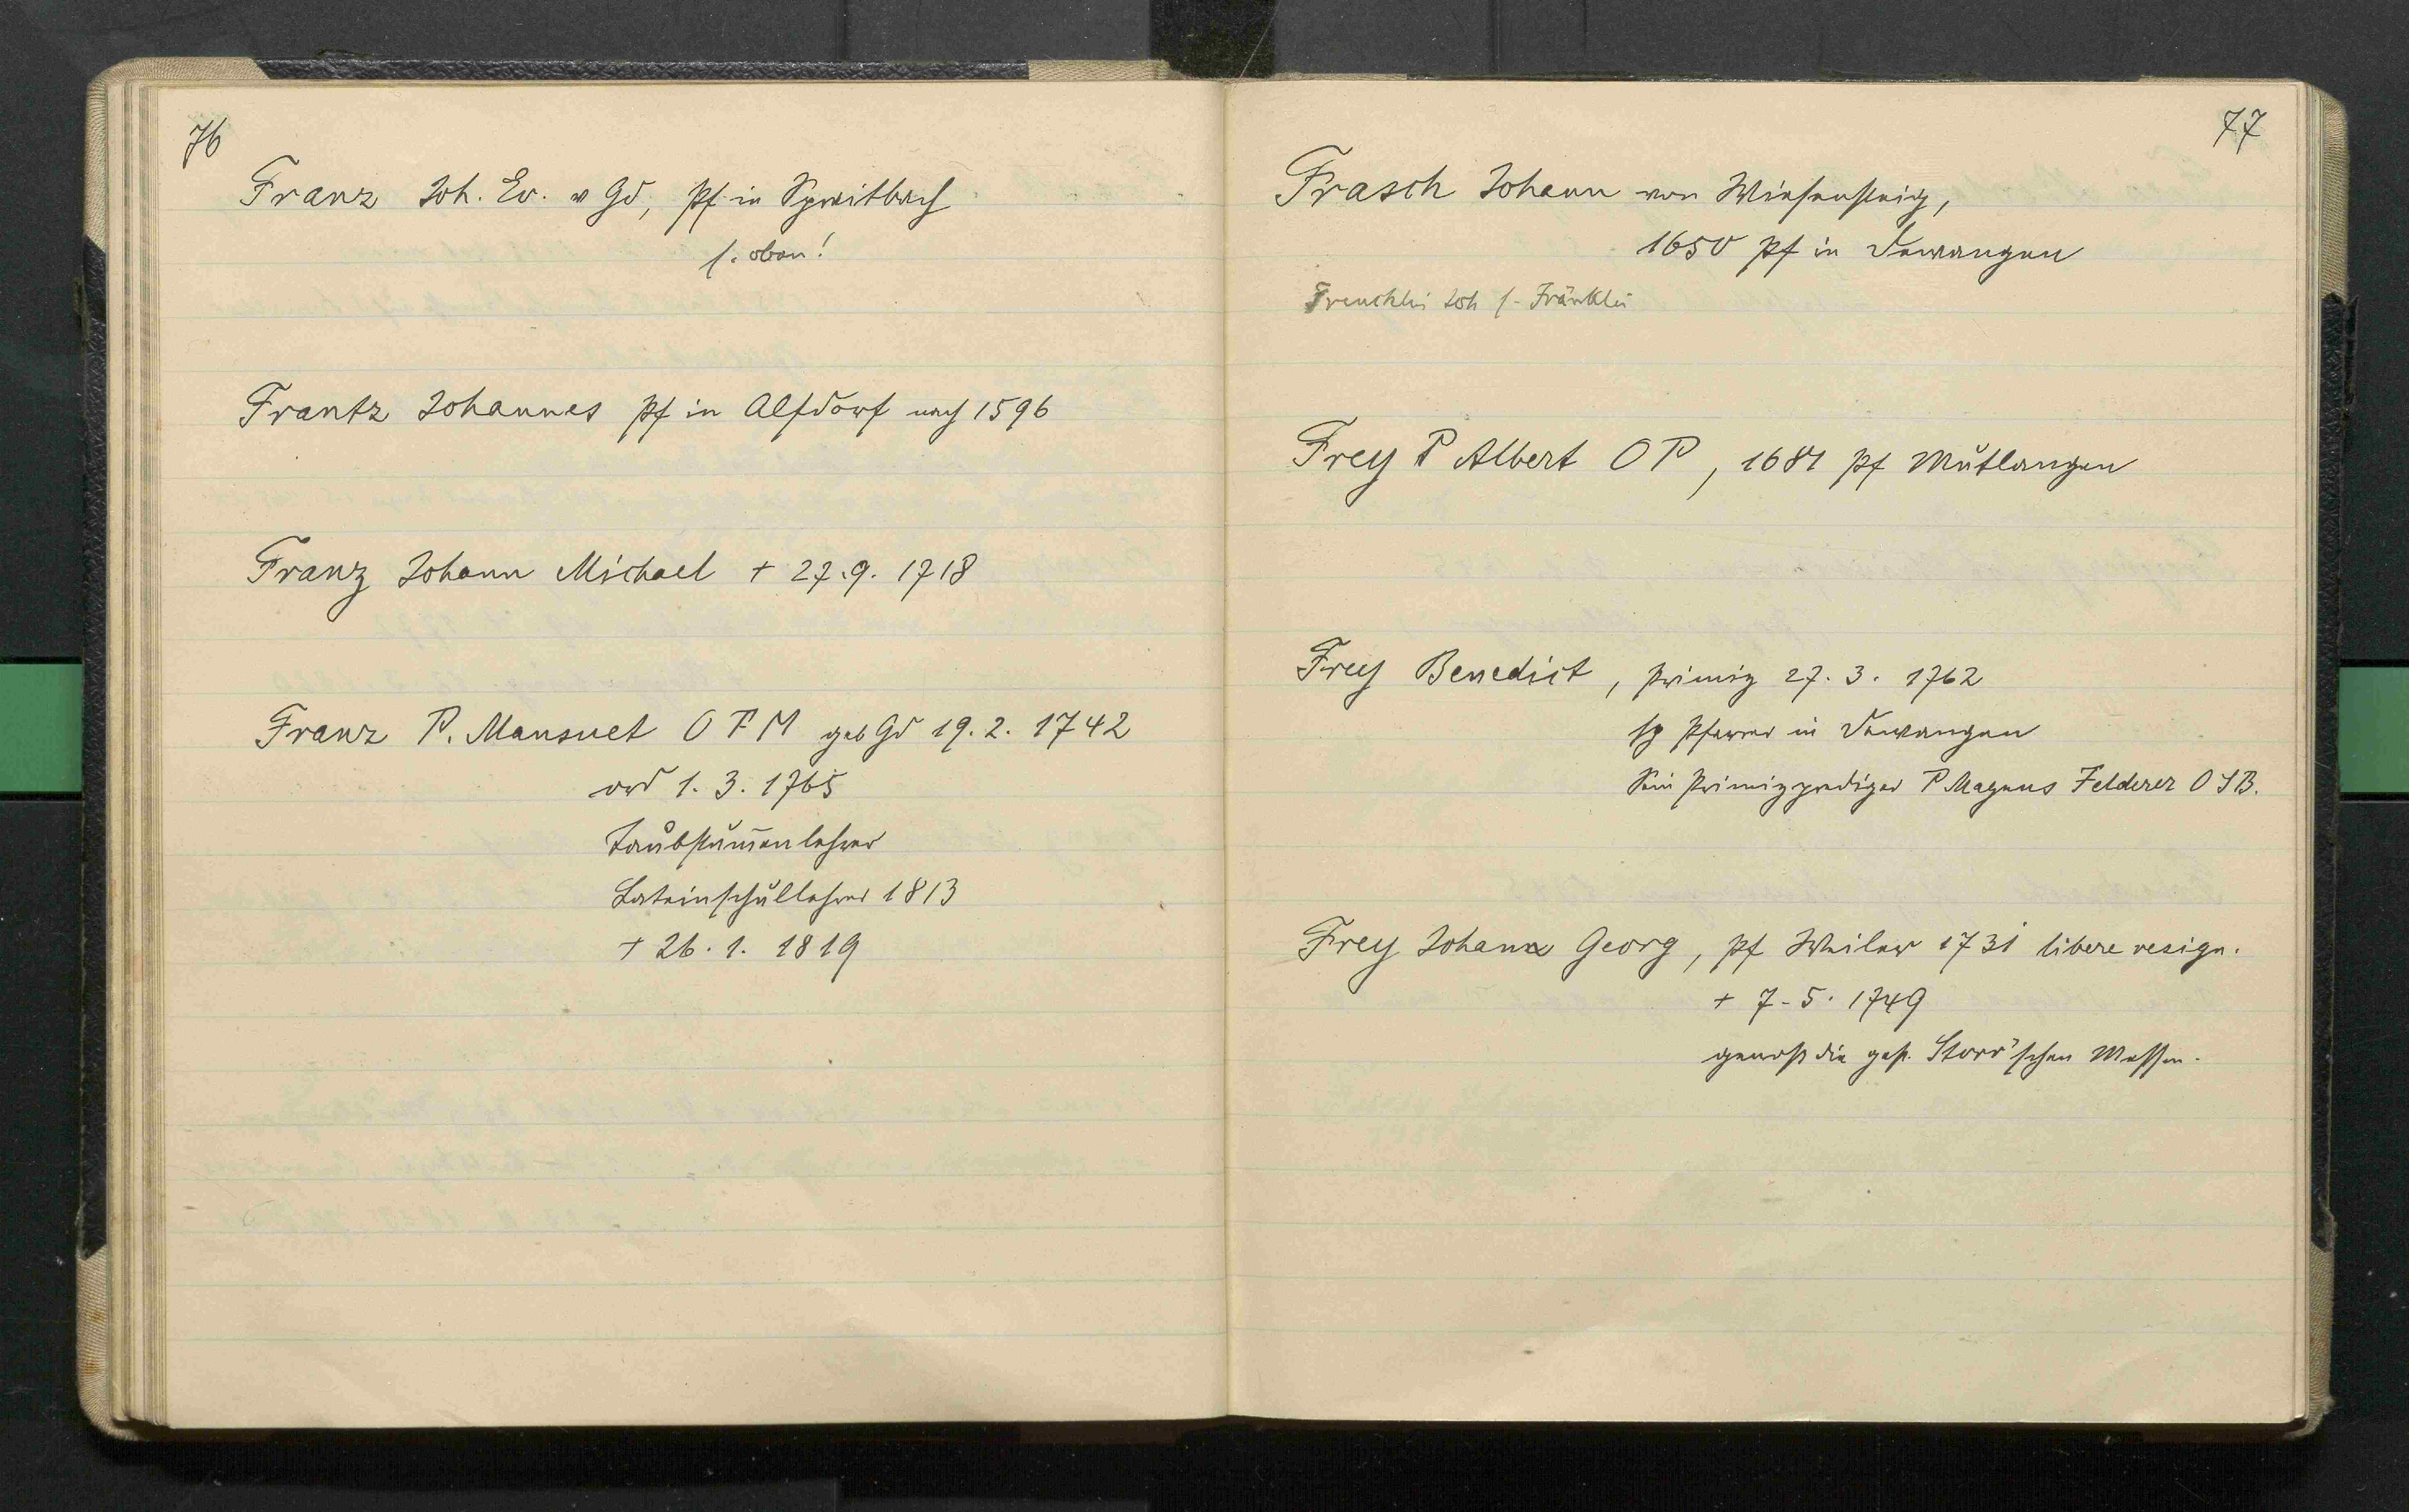 76
Franz Joh. Ev. v Gd, Pf in Spraitbach
s. oben!
Frantz Johannes Pf in Alfdorf nach 1596
Franz Johann Michael + 27.9. 1718
Franz P. Mansuet OFM geb Gd 19. 2. 1742
ord 1. 3. 1765
Taubstum̄enlehrer
Lateinschullehrer 1813
+ 26. 1. 1819
77
Frasch Johann von Wiesensteig,
1650 Pf in Dewangen
Frenchlin Joh s. Fränklin
Frey P Albert OP, 1681 Pf Mutlangen
Frey Benedict, Primiz 27. 3. 1762
sp Pfarrer in Dewangen
Sein Primizprediger P Magnus Felderer OSB.
Frey Johann Georg, Pf Weiler 1731 libere resign.
+ 7. 5. 1749
genoß die gest. Storr'schen Messen.